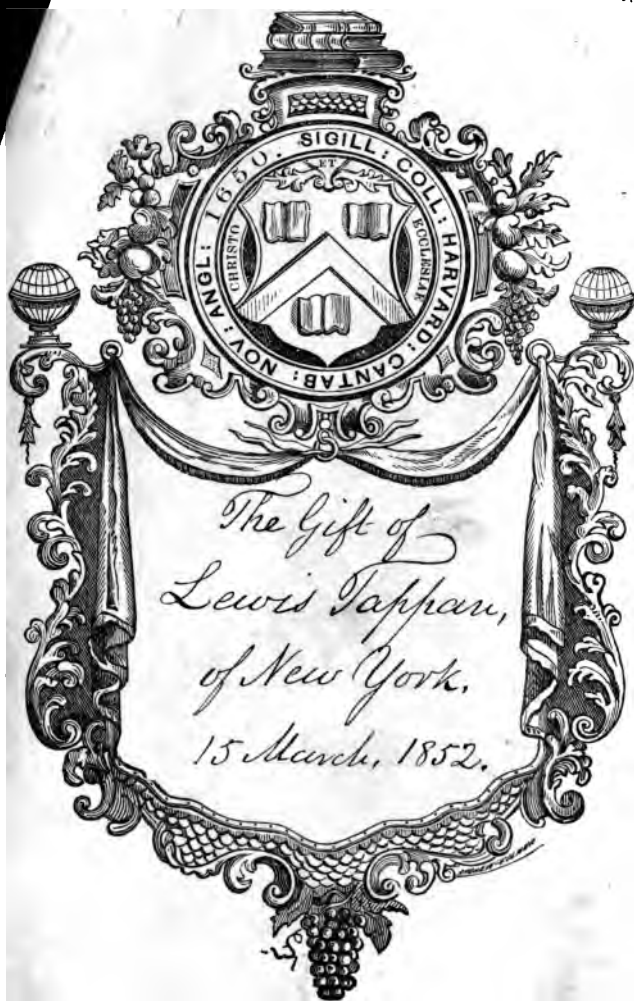 SIGILL: COLL: HARVARD: CANTAB: NOV: ANGL: 1650.
ET
CHRISTO
ECCLESIAE
The Gift of
Lewis Tappan,
of New York.
15 March, 1852.